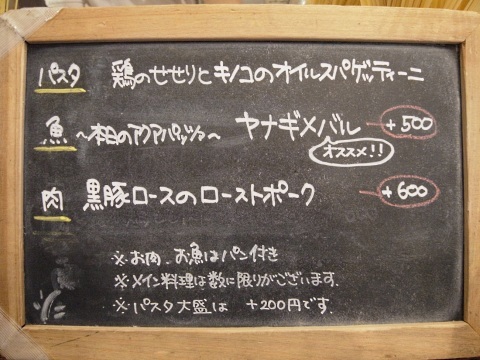 パスタ 鶏のせせりとキノコのオイルスパゲッティーニ
魚 ~本日のアクアパッツァ~ ヤナギメバル +500
オススメ!!
肉 黒豚ロースのローストポーク +600
※お肉、お魚はパン付き
※メイン料理は数に限りがございます。
※パスタ大盛は +200円です。